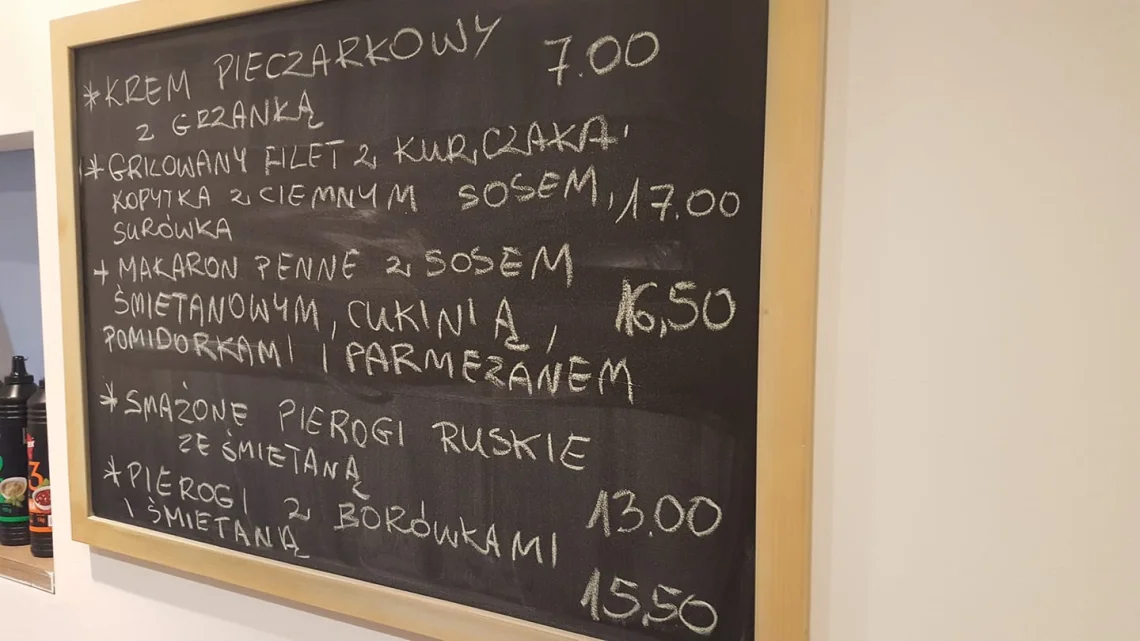 *KREM PIECZARKOWY 7.00
Z GRZANKĄ
*GRILOWANY FILET Z KURCZAKA,
KOPYTKA Z CIEMNYM SOSEM, 17.00
SURÓWKA
+ MAKARON PENNE Z SOSEM
ŚMIETANOWYM, CUKINIĄ, 16,50
POMIDORKAMI I PARMEZANEM
*SMAŻONE PIEROGI RUSKIE
ZE ŚMIETANĄ 13.00
*PIEROGI Z BORÓWKAMI
I ŚMIETANĄ 15,50
3